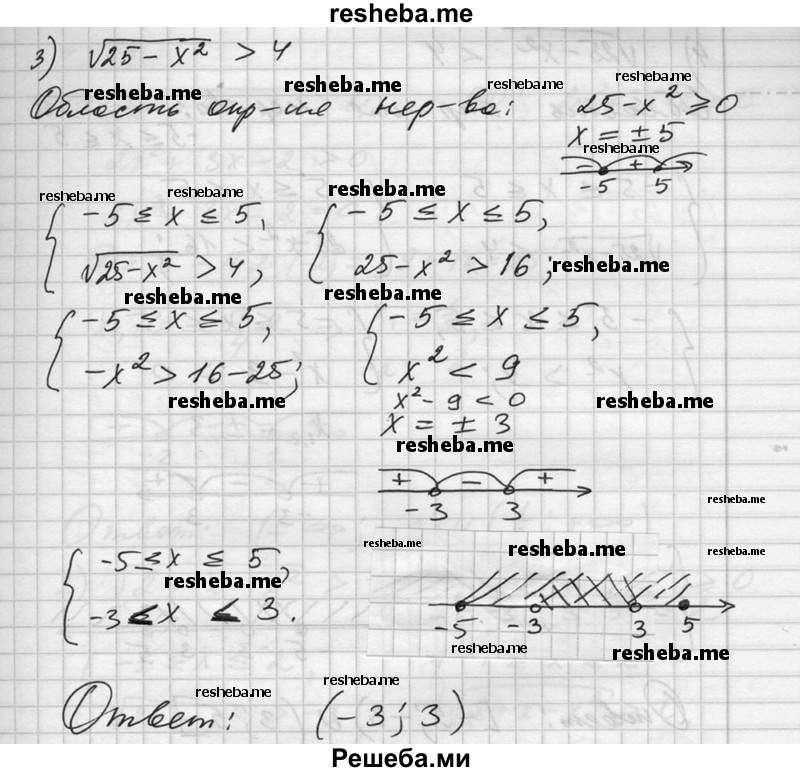 resheba.me
3) √25 - x² > 4
resheba.me resheba.me resheba.me resheba.me
Область опр-ия нер-ва: 25 - x² ≥ 0
x = ± 5
resheba.me
- + -
-5 5
resheba.me resheba.me resheba.me
{ -5 ≤ x ≤ 5, { -5 ≤ x ≤ 5,
√25-x² > 4, 25 - x² > 16; resheba.me
resheba.me resheba.me
{ -5 ≤ x ≤ 5, { -5 ≤ x ≤ 5,
-x² > 16 - 25; x² < 9
resheba.me x² - 9 < 0 resheba.me
x = ± 3
resheba.me
+ - +
-3 3
resheba.me
resheba.me resheba.me resheba.me
{ -5 ≤ x ≤ 5,
resheba.me
-3 ≤ x ≤ 3.
-5 -3 3 5
resheba.me resheba.me
resheba.me resheba.me
Ответ: (-3; 3)
Решеба.ми